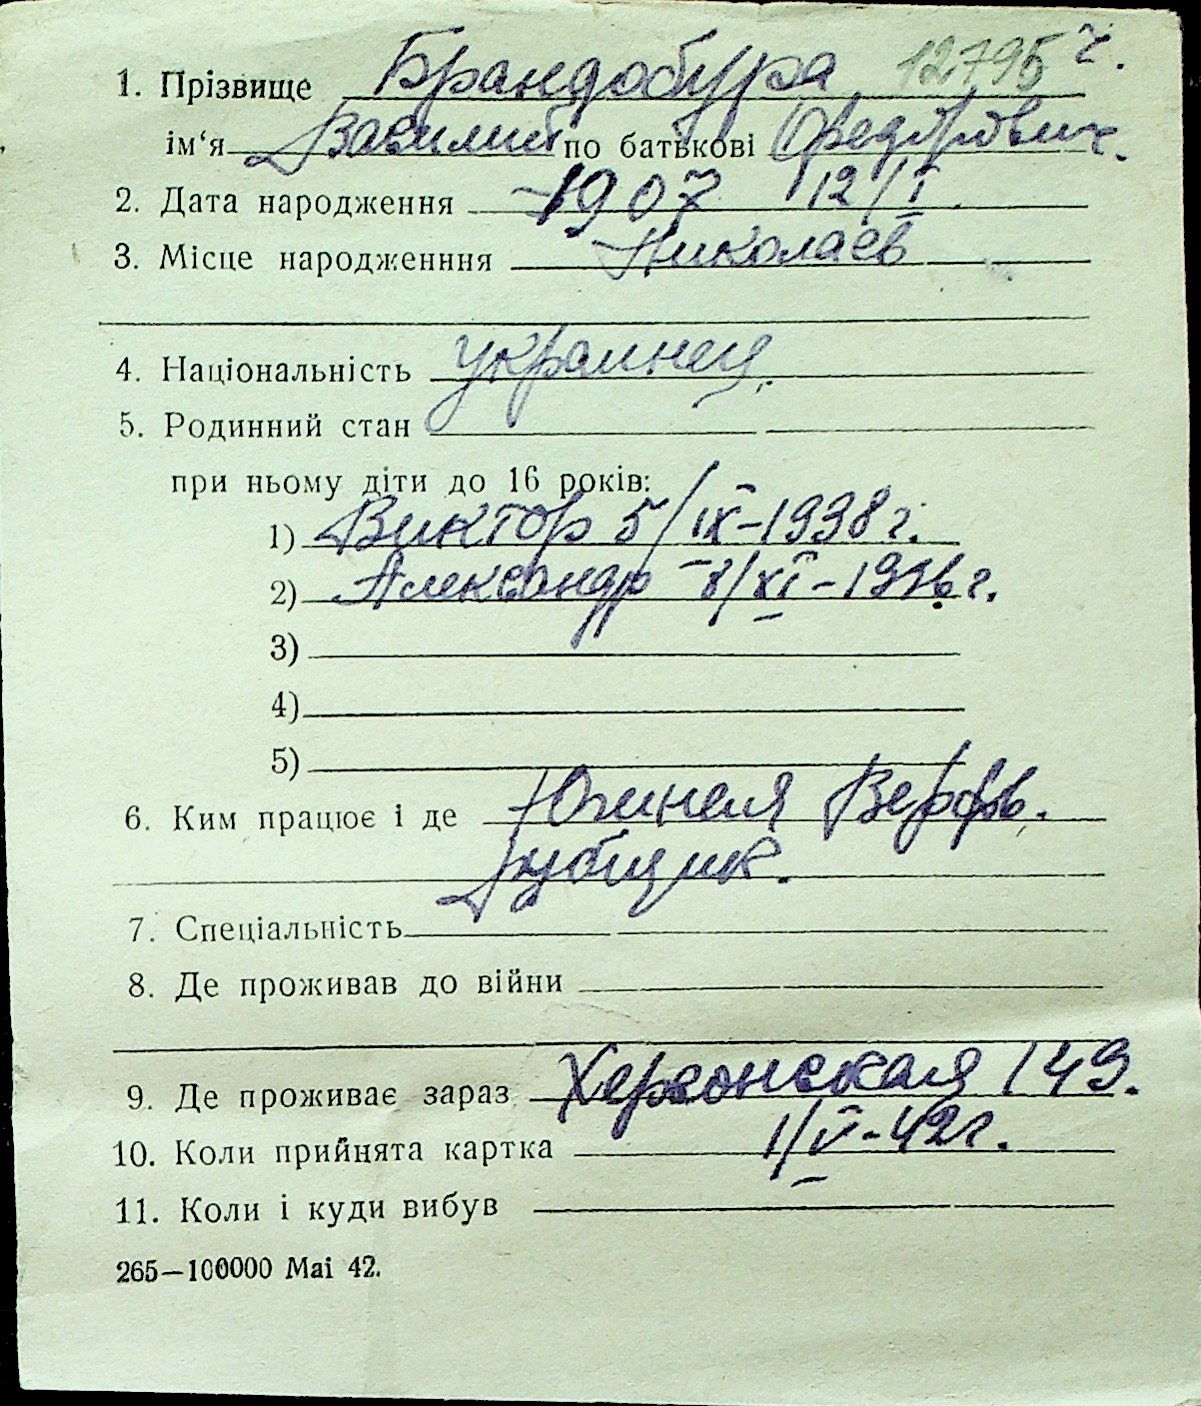 1. Прізвище Брандобура 12795 г.
ім‘я Василий по батькові Федорович.
2. Дата народження 1907 12/I.
3. Місце народженння Николаев
4. Національність украинец.
5. Родинний стан
при ньому діти до 16 років:
1) Виктор 5/IX-1938 г.
2) Александр /XI-1936 г.
3)
4)
5)
6. Ким працює і де Южная Верфь.
7. Спеціальність
8. Де проживав до війни
9. Де проживає зараз Херсонская 149.
10. Коли прийнята картка 1/V-42 г.
11. Коли і куди вибув
265—100000 Маі 42.